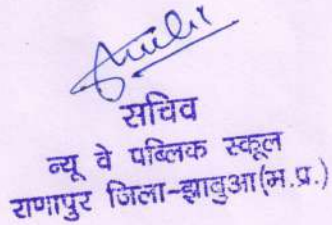 सचिव
न्यू वे पब्लिक स्कूल
राणापुर जिला-झाबुआ(म.प्र.)